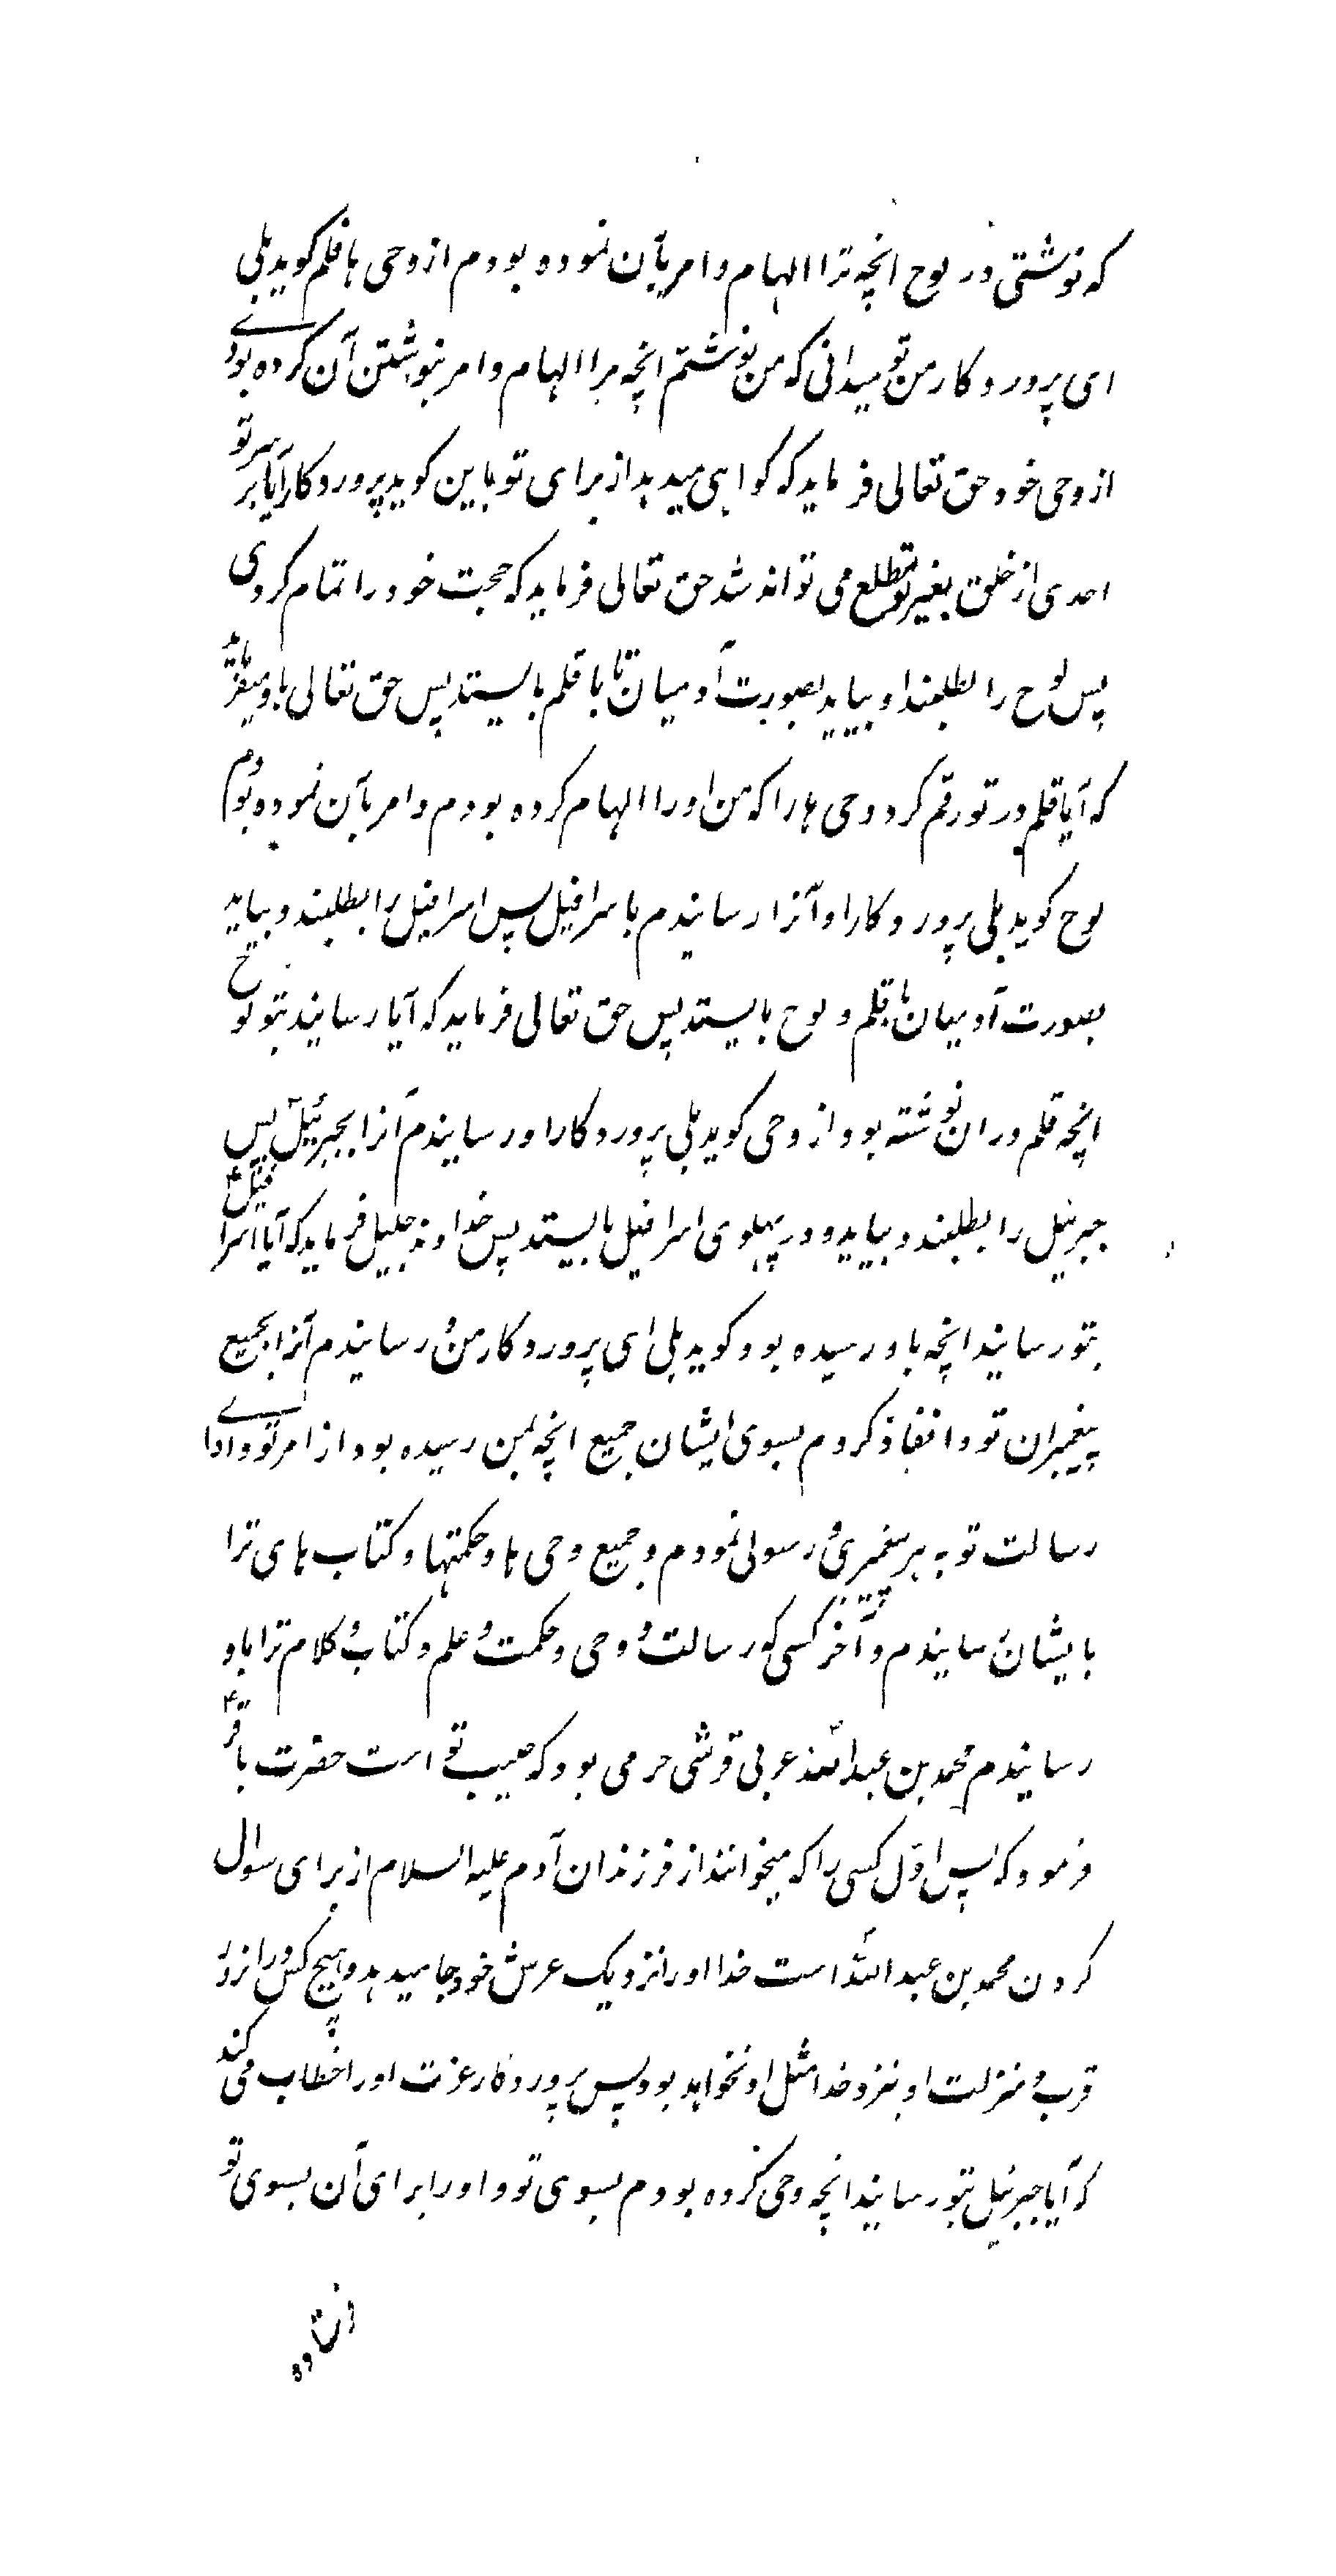 که نوشتی در لوح انچه ترا الهام و امر بآن نموده بودم از وحی ها قلم کوید بلی
ای پروردکار من تو میدانی که من نوشتم انچه مرا الهام و امر بنوشتن آن کرده بودے
از وحی خود حق تعالی فرماید که کواهی میدهد از برای تو باین کوید پروردکارا آیا بر سر تو
احدی از خلق بغیر تو مطلع می تواند شد حق تعالی فرماید که حجت خود را تمام کردی
پس لوح را بطلبند او بیاید بصورت آدمیان تا با قلم بایستد پس حق تعالی باو میفرماید
که آیا قلم در تو رقم کرد وحی ها را که من او را الهام کرده بودم و امر بآن نموده بودم
لوح کوید بلی پروردکارا و آنرا رسانیدم باسرافیل پس اسرافیل را بطلبند و بیاید
بصورت آدمیان با قلم و لوح بایستد پس حق تعالی فرماید که آیا رسانید بتو لوح
انچه قلم دران نوشته بود از وحی کوید بلی پروردکارا و رسانیدم آنرا بجبرئیل پس
جبرئیل را بطلبند و بیاید و در پهلوی اسرافیل بایستد پس خداوند جلیل فرماید که آیا اسرافیل ع
بتو رسانید انچه باو رسیده بود کوید بلی ای پروردکار من و رسانیدم آنرا بجمیع
پیغمبران تو و انفاذ کردم بسوی ایشان جمیع انچه بمن رسیده بود از امر تو و ادائے
رسالت تو به هر پیغمبری و رسولی نمودم و جمیع وحی ها و حکمتها و کتاب های ترا
بایشان رسانیدم و آخر کسی که رسالت و وحی و حکمت و علم و کتاب و کلام ترا باو
رسانیدم محمد بن عبدالله عربی قرشی حرمی بود که حبیب تو است حضرت باقر ع
فرمود که پس اول کسی را که میخوانند از فرزندان آدم علیه السلام از برای سوال
کردن محمد بن عبدالله است خدا او را نزدیک عرش خود جا میدهد و هیچ کس در انروز
قرب و منزلت او نزد خدا مثل او نخواهد بود پس پروردکار عزت او را خطاب می کند
که آیا جبرئیل بتو رسانید انچه وحی کرده بودم بسوی تو و او را برای آن بسوی تو